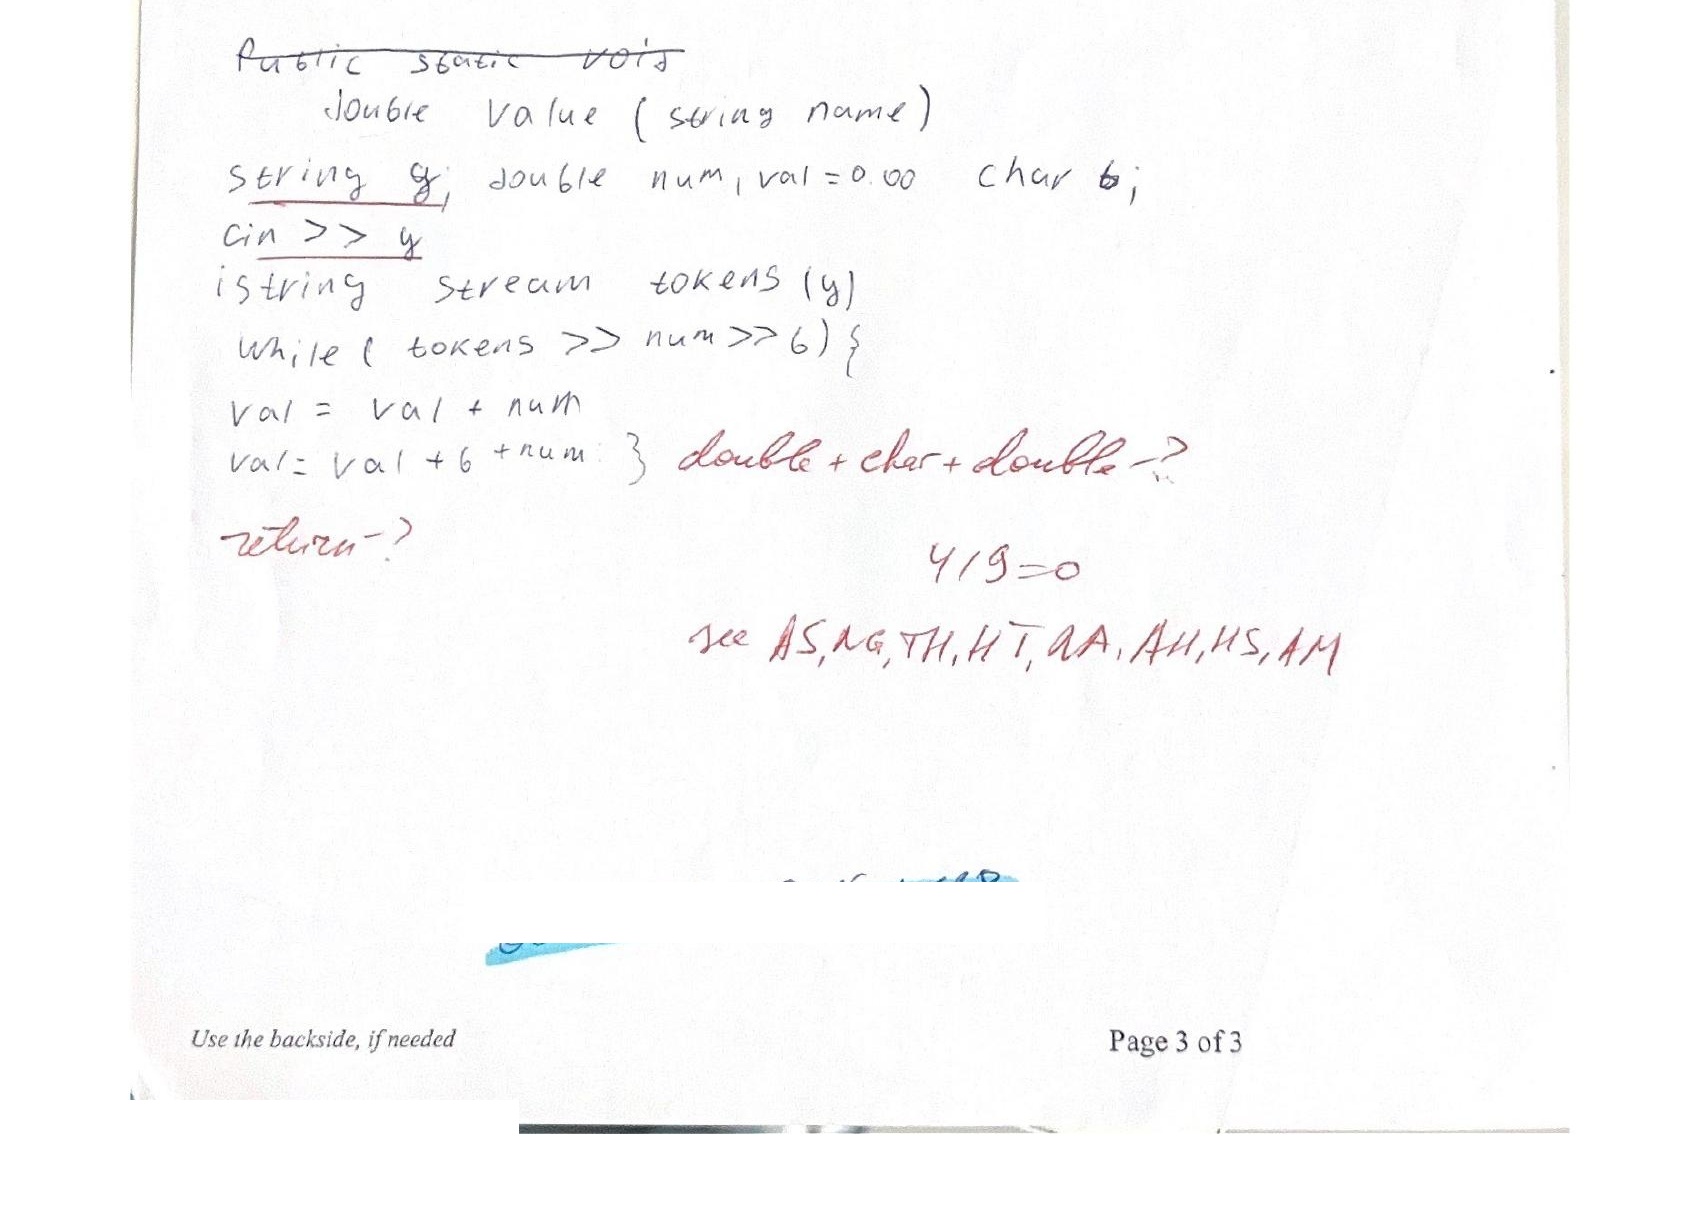 Public static void
double value ( string name )
string y; double num, val = 0.00 char b;
cin >> y
istring stream tokens (y)
while ( tokens >> num >> b ) {
val = val + num
val = val + b + num }
double + char + double - ?
return - ?
4/9=0
see AS, NG, TH, HT, AA, AH, HS, AM
Use the backside, if needed
Page 3 of 3